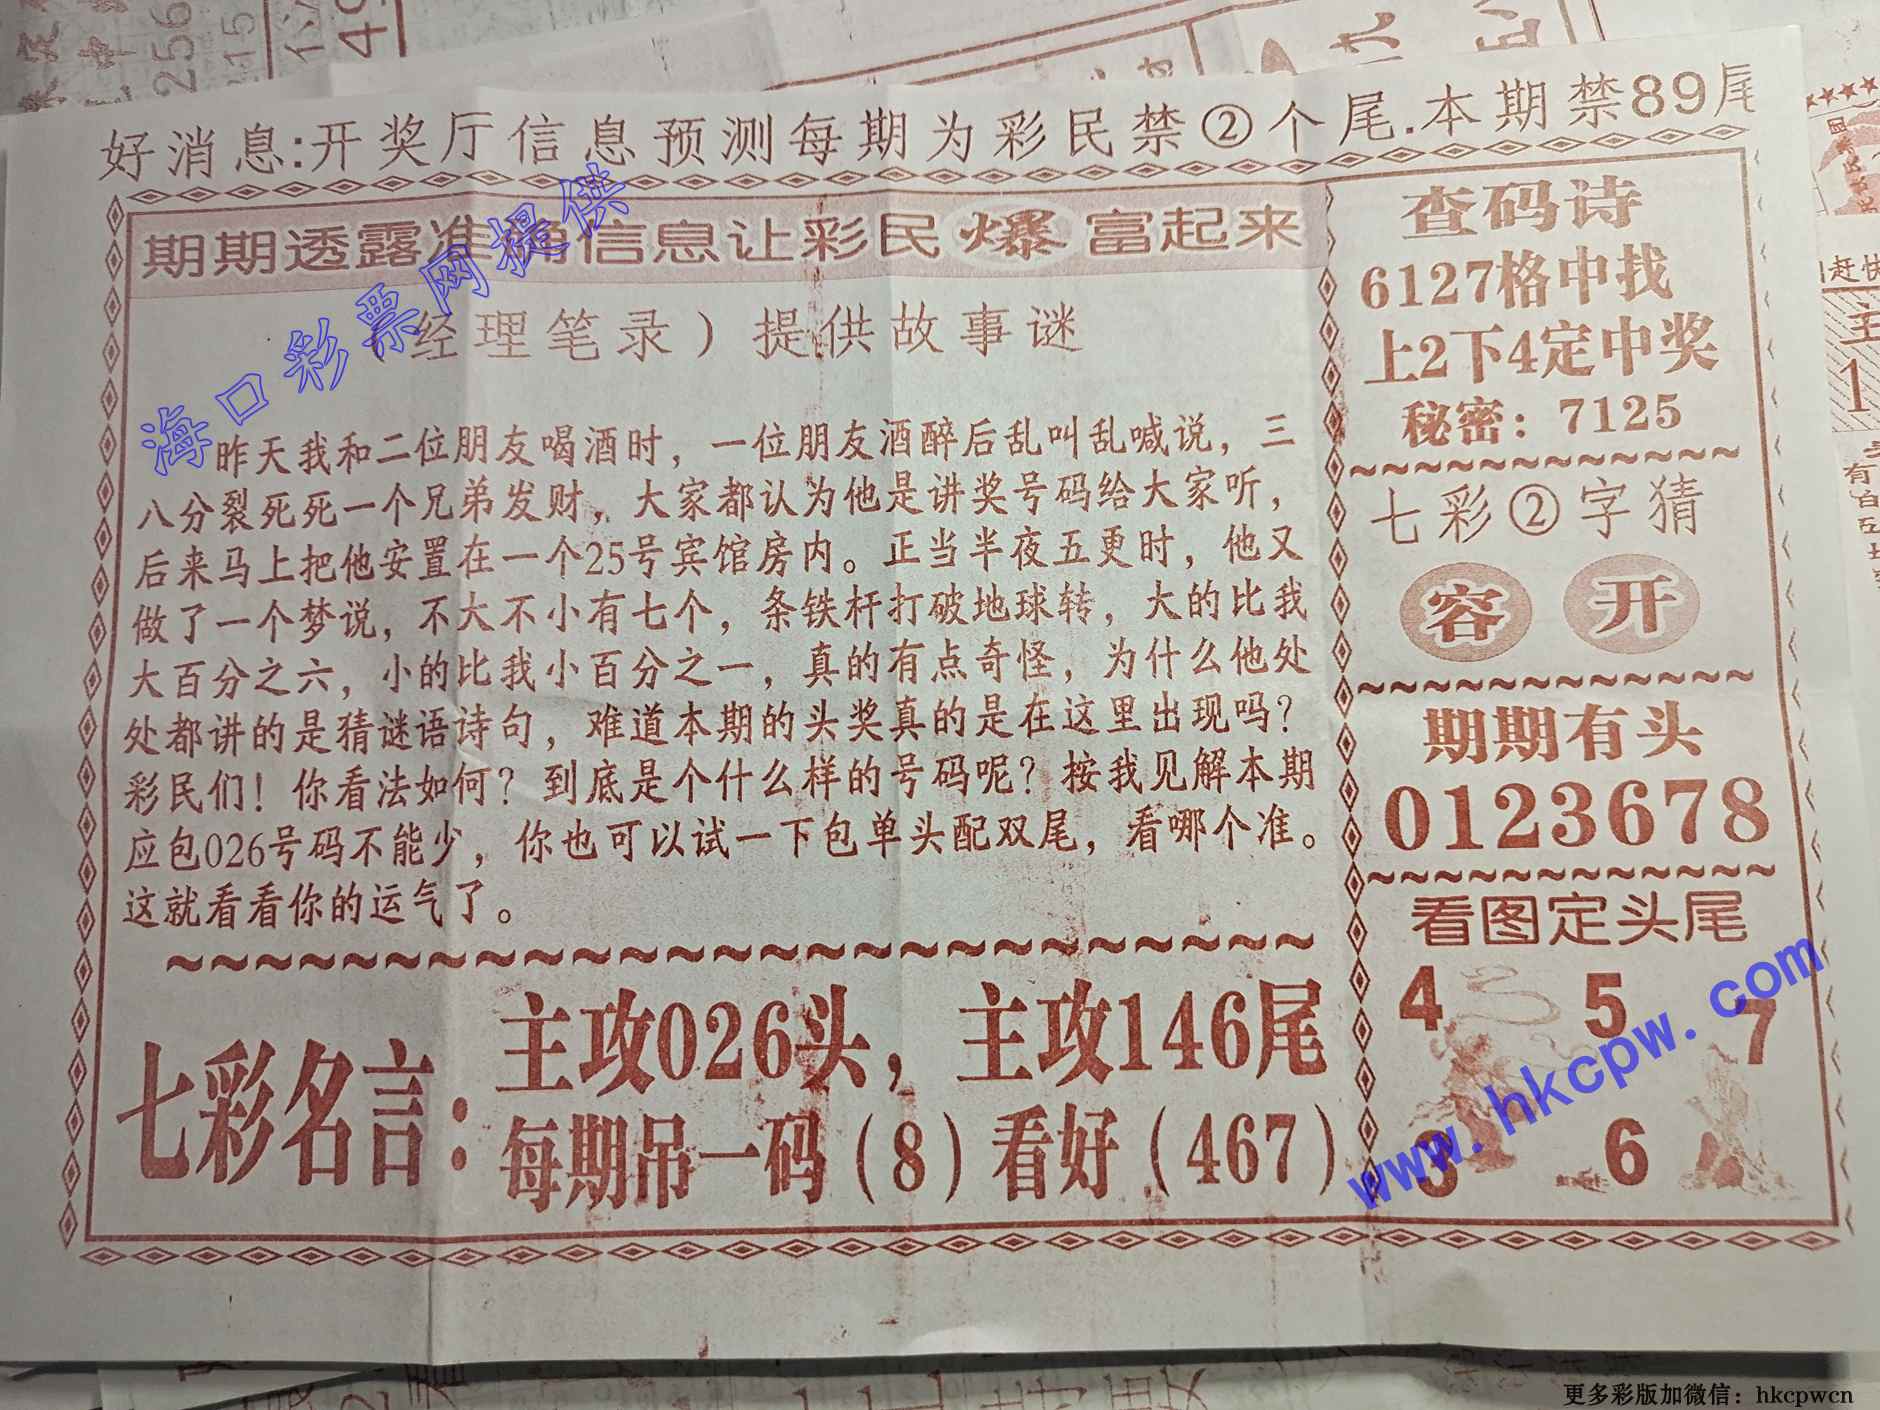 好消息:开奖厅信息预测每期为彩民禁②个尾.本期禁89尾
期期透露准确信息让彩民爆富起来
（经理笔录）提供故事谜
昨天我和二位朋友喝酒时，一位朋友酒醉后乱叫乱喊说，三
八分裂死死一个兄弟发财，大家都认为他是讲奖号码给大家听，
后来马上把他安置在一个25号宾馆房内。正当半夜五更时，他又
做了一个梦说，不大不小有七个，条铁杆打破地球转，大的比我
大百分之六，小的比我小百分之一，真的有点奇怪，为什么他处
处都讲的是猜谜语诗句，难道本期的头奖真的是在这里出现吗？
彩民们！你看法如何？到底是个什么样的号码呢？按我见解本期
应包026号码不能少，你也可以试一下包单头配双尾，看哪个准。
这就看看你的运气了。
七彩名言：
主攻026头，主攻146尾
每期吊一码（8）看好（467）
查码诗
6127格中找
上2下4定中奖
秘密：7125
七彩②字猜
容 开
期期有头
0123678
看图定头尾
4 5 7
3 6
海口彩票网提供
www.hkcpw.com
更多彩版加微信：hkcpwcn